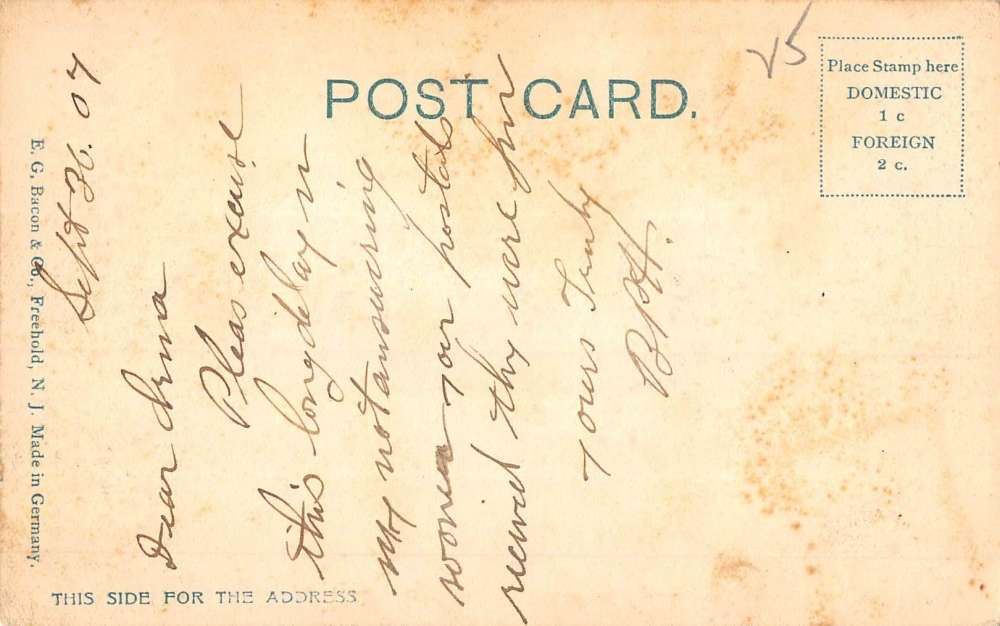 POST CARD.
Place Stamp here
DOMESTIC
1 c
FOREIGN
2 c.
25
E. G. Bacon & Co., Freehold, N. J. Made in Germany.
THIS SIDE FOR THE ADDRESS
Sept 07
Dear Irma
Pleas excuse
this long delay in
my not answering
sooner your postals
recived they were fine
Yours Truly